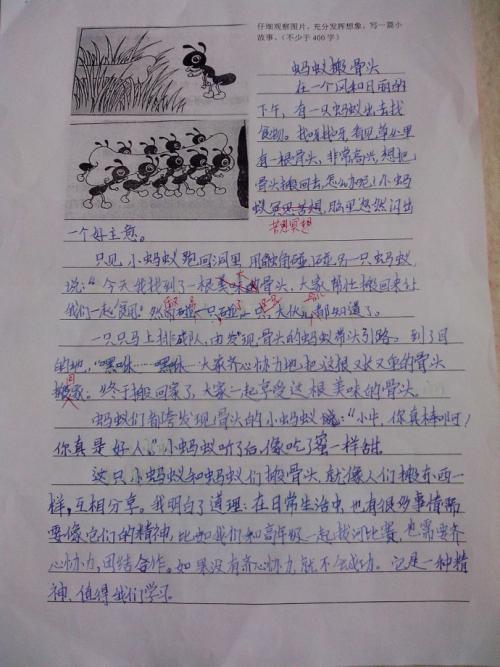 仔细观察图片，充分发挥想象，写一篇小
故事。（不少于400字）
蚂蚁搬骨头
在一个风和日丽的
下午，有一只蚂蚁出去找
食物。找呀找呀看见草丛里
有一根骨头，非常高兴，想把
骨头搬回去，怎么办呢！小蚂
蚁冥思苦想，脑里忽然闪出
苦思冥想
一个好主意。
只见小蚂蚁跑回洞里，用触角碰碰另一只蚂蚁
说：“今天我找到了一根美味骨头，大家帮忙搬回来让
大
我们一起食用”然后碰一只，大伙儿都知道了。
一只只马上排成队，由发现骨头的蚂蚁带头引路。到了目
的地，“嘿咻……嘿咻……大家齐心协力地把这根又长又重的骨头
搬回家。终于搬回家了，大家一起享受这根美味的骨头。
蚂蚁们都夸发现骨头的小蚂蚁说：“小牛，你真棒啊！
你真是好人。”小蚂蚁听了后，像吃了蜜一样甜。
这只小蚂蚁和蚂蚁们搬骨头，就像人们搬东西一
样，互相分享。我明白了道理：在日常生活中，也有很多事情需
要像它们的精神，比如我们和高年级一起拔河比赛，也需要齐
心协力，团结合作。如果没有齐心协力，就不会成功。它是一种精
神，值得我们学习。